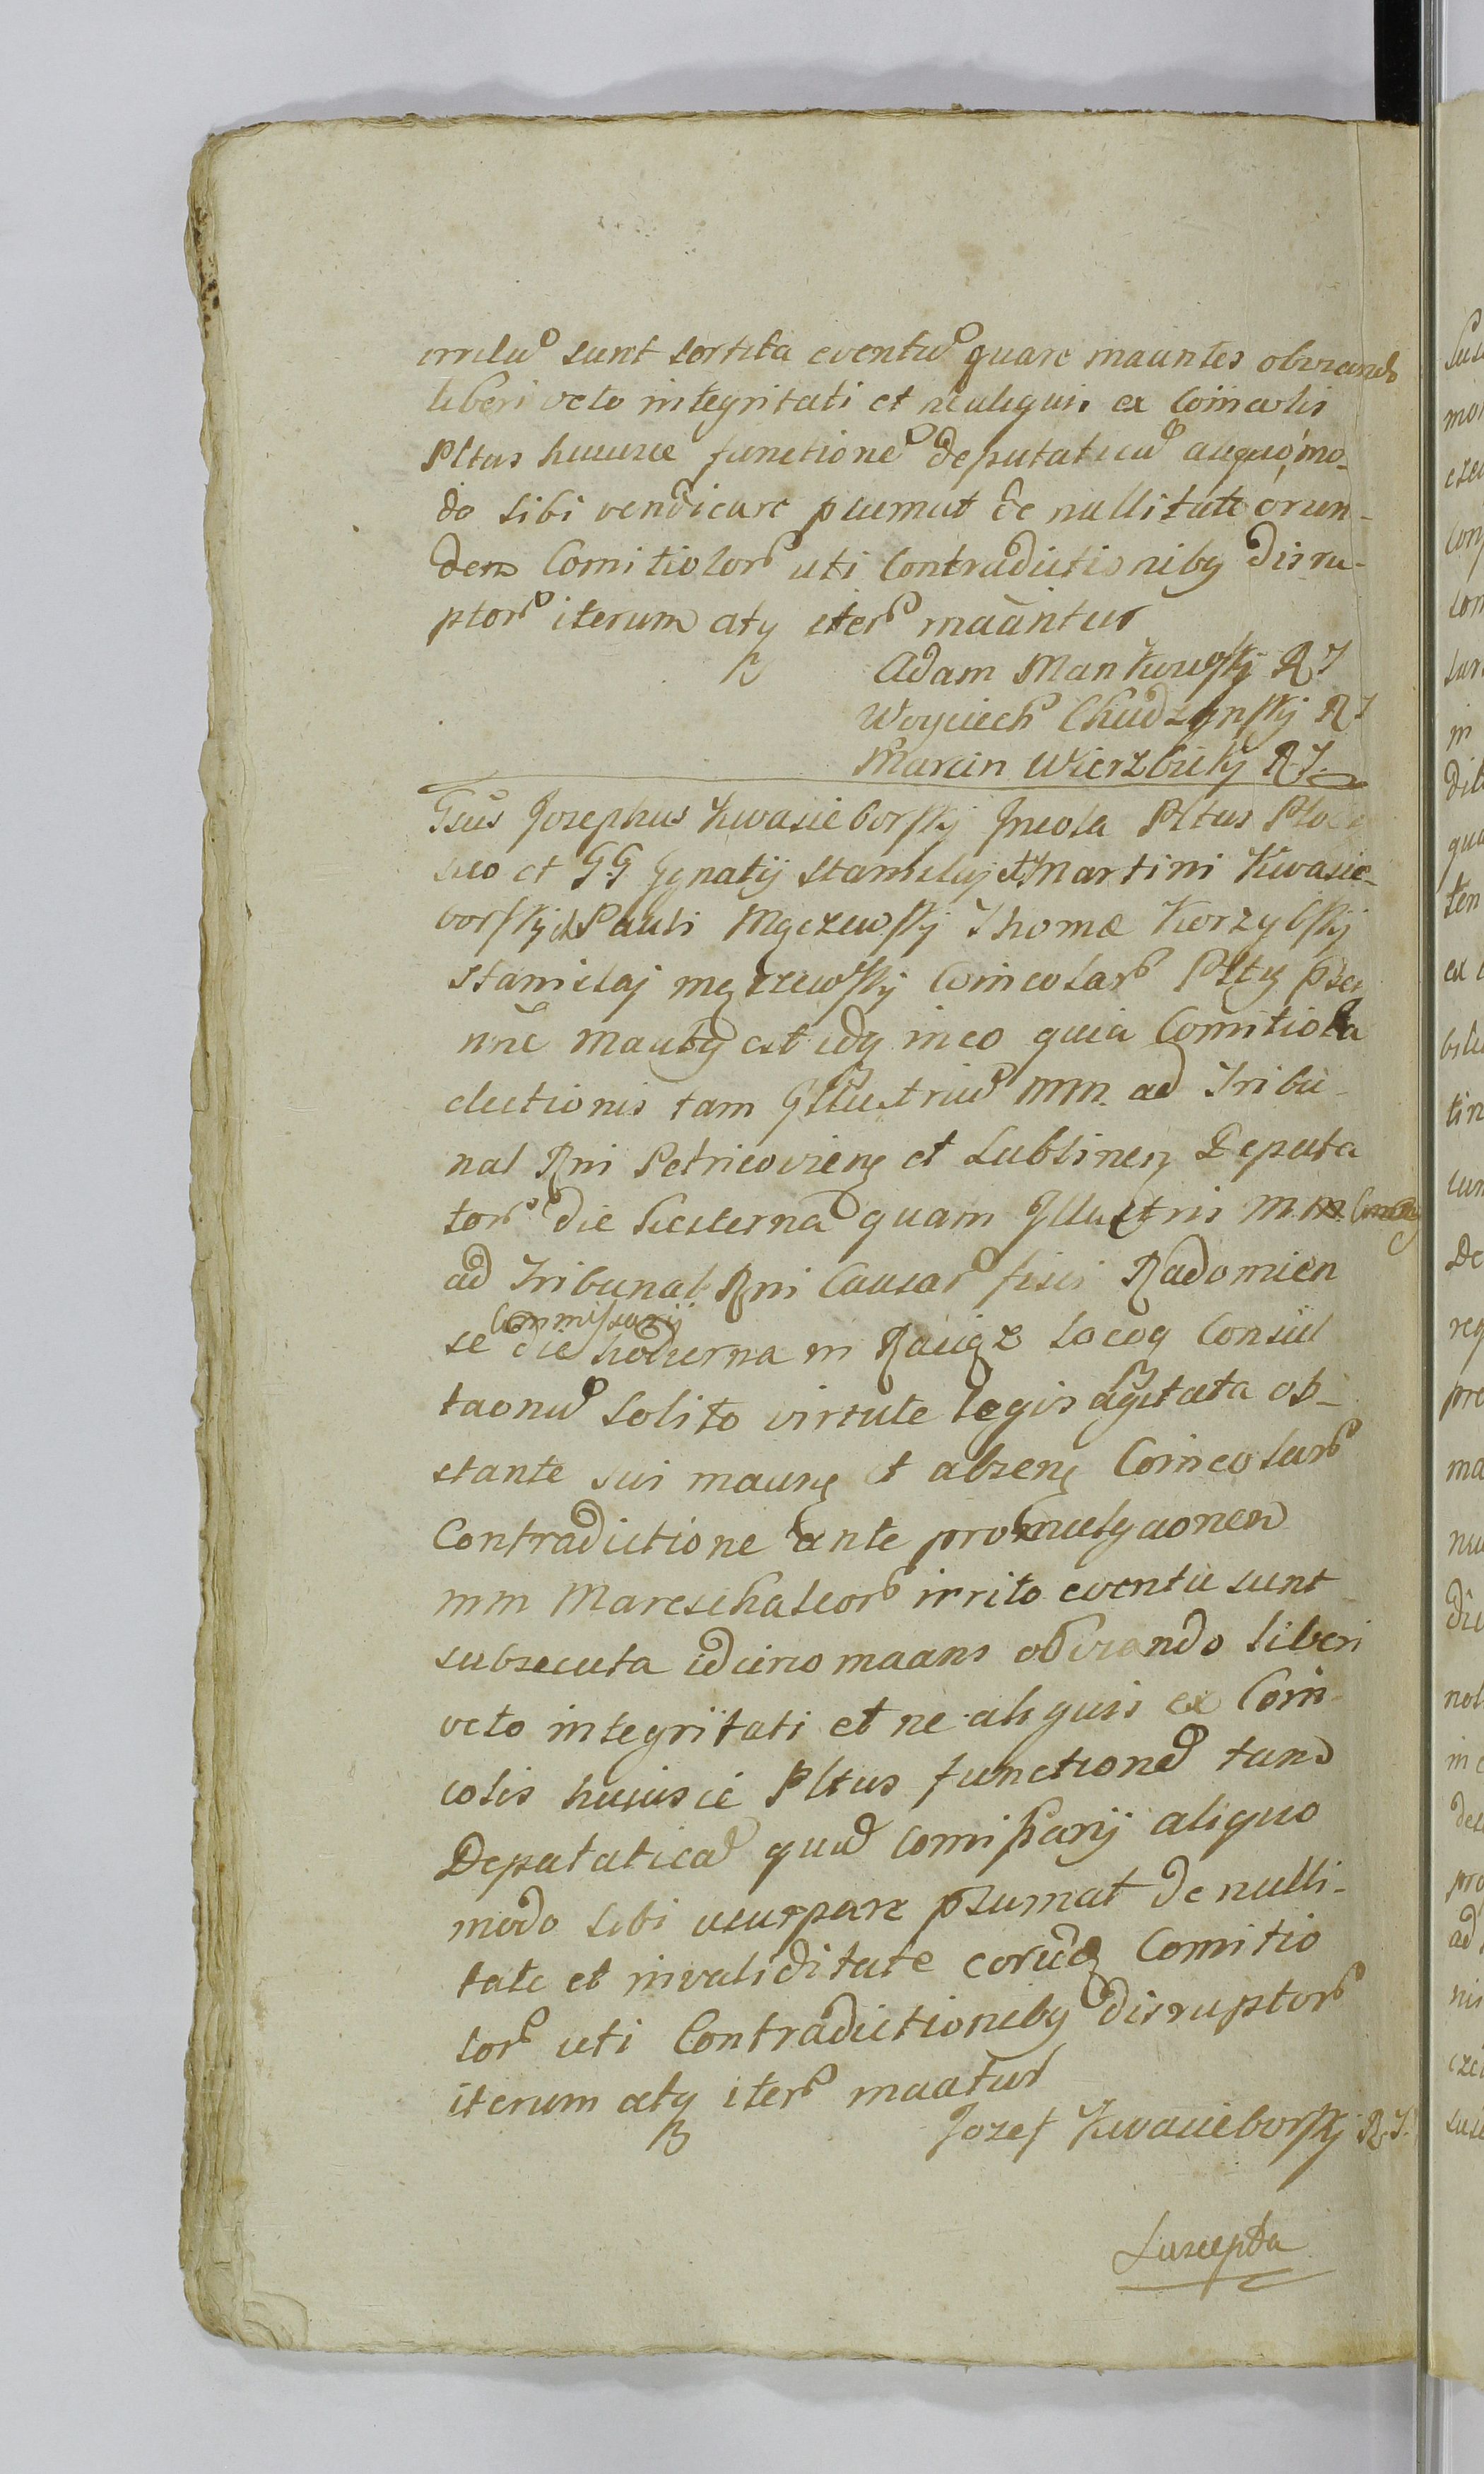 irritũ sunt sortita eventũ quare maantes obviando
liberi veto integritati et ne aliquis ex Coincolis
Pltus huiusce functionẽ deputaticã aliquo mo-
do sibi vendicare psumat de nullitate eorun-
dem Comitiolor̃ uti Contradictionibq disru-
ptor̃ iterum atq iter̃ maãntur
Adam Mankowskj RJ
Woyciech Chudzynskj RJ
Marcin Wierzbickj RJ
Gsus Josephus Kwasieborskj Jncola Pltus Ploc
suo et GG Jgnatij Stanislaj et Martini Kwasie-
borskich Pauli Męczewskj Thomæ Korzybskj
Stanislaj Męczewskj Coincolar̃ Pltus
nñe mautq est idq in eo quia Comitiola
electionis tam Jllustriũ MM. ad Tribu-
nal Rni Petricovieng et Lublineng Deputa
tor̃ die hesterna quam Jllustris M.M.
ad Tribunal Rni Causar̃ fisci Radomien
Commissarij
se die hodierna in Raciąż locoq Consul
taonũ solito virtute legis agitata ob-
stante sui maang et abseng Coincolar̃
Contradictione ante promulgaonem
MM Mareschalcor̃ irrito eventu sunt
subsecuta idcirco maans obviando liberi
veto integritati et ne aliquis ex Coin-
colis huiusce Pltus functionẽ tam
Deputaticã quã Comissarij aliquo
modo sibi usurpare psumat de nulli-
tate et invaliditate eorũdẽ Comitio
lor̃ uti Contradictionibq disruptor̃
iterum atq iter̃ maatur
Jozef Kwasieborskj RJ.
Suscepta